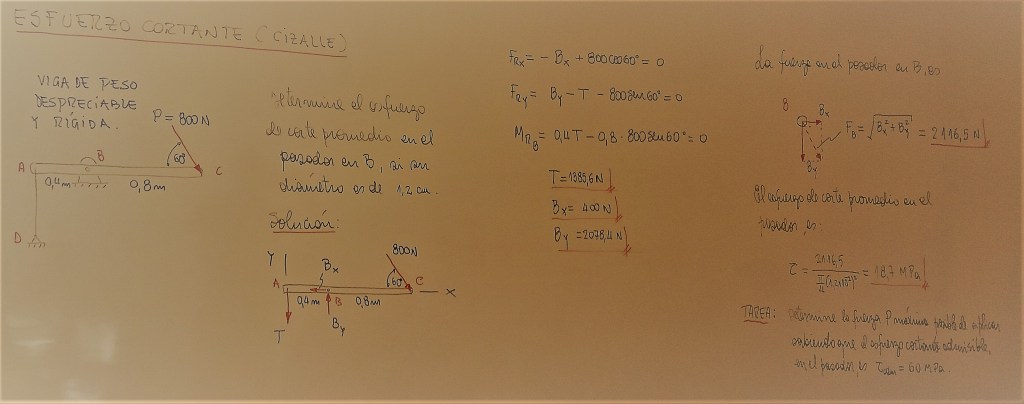 ESFUERZO CORTANTE (CIZALLE)
VIGA DE PESO
DESPRECIABLE
Y RÍGIDA.
P = 800N
60°
A
B
C
0,4m
0,8m
D
Determine el esfuerzo
de corte promedio en el
pasador en B, si su
diámetro es de 1,2 cm.
Solución:
Y
Bx
800N
A
60°
C
X
0,4m
B
0,8m
T
By
FRx = - Bx + 800cos60° = 0
FRy = By - T - 800sen60° = 0
MRB = 0,4T - 0,8·800sen60° = 0
T = 1385,6 N
Bx = 400 N
By = 2078,4 N
La fuerza en el pasador en B, es
B
Bx
FB = √Bx² + By² = 2116,5 N
By
El esfuerzo de corte promedio en el
pasador, es:
τ = 2116,5 / π/4 (1,2·10⁻²)² = 18,7 MPa
TAREA: Determine la fuerza P máxima posible de aplicar
sabiendo que el esfuerzo cortante admisible,
en el pasador, es τadm = 60 MPa.